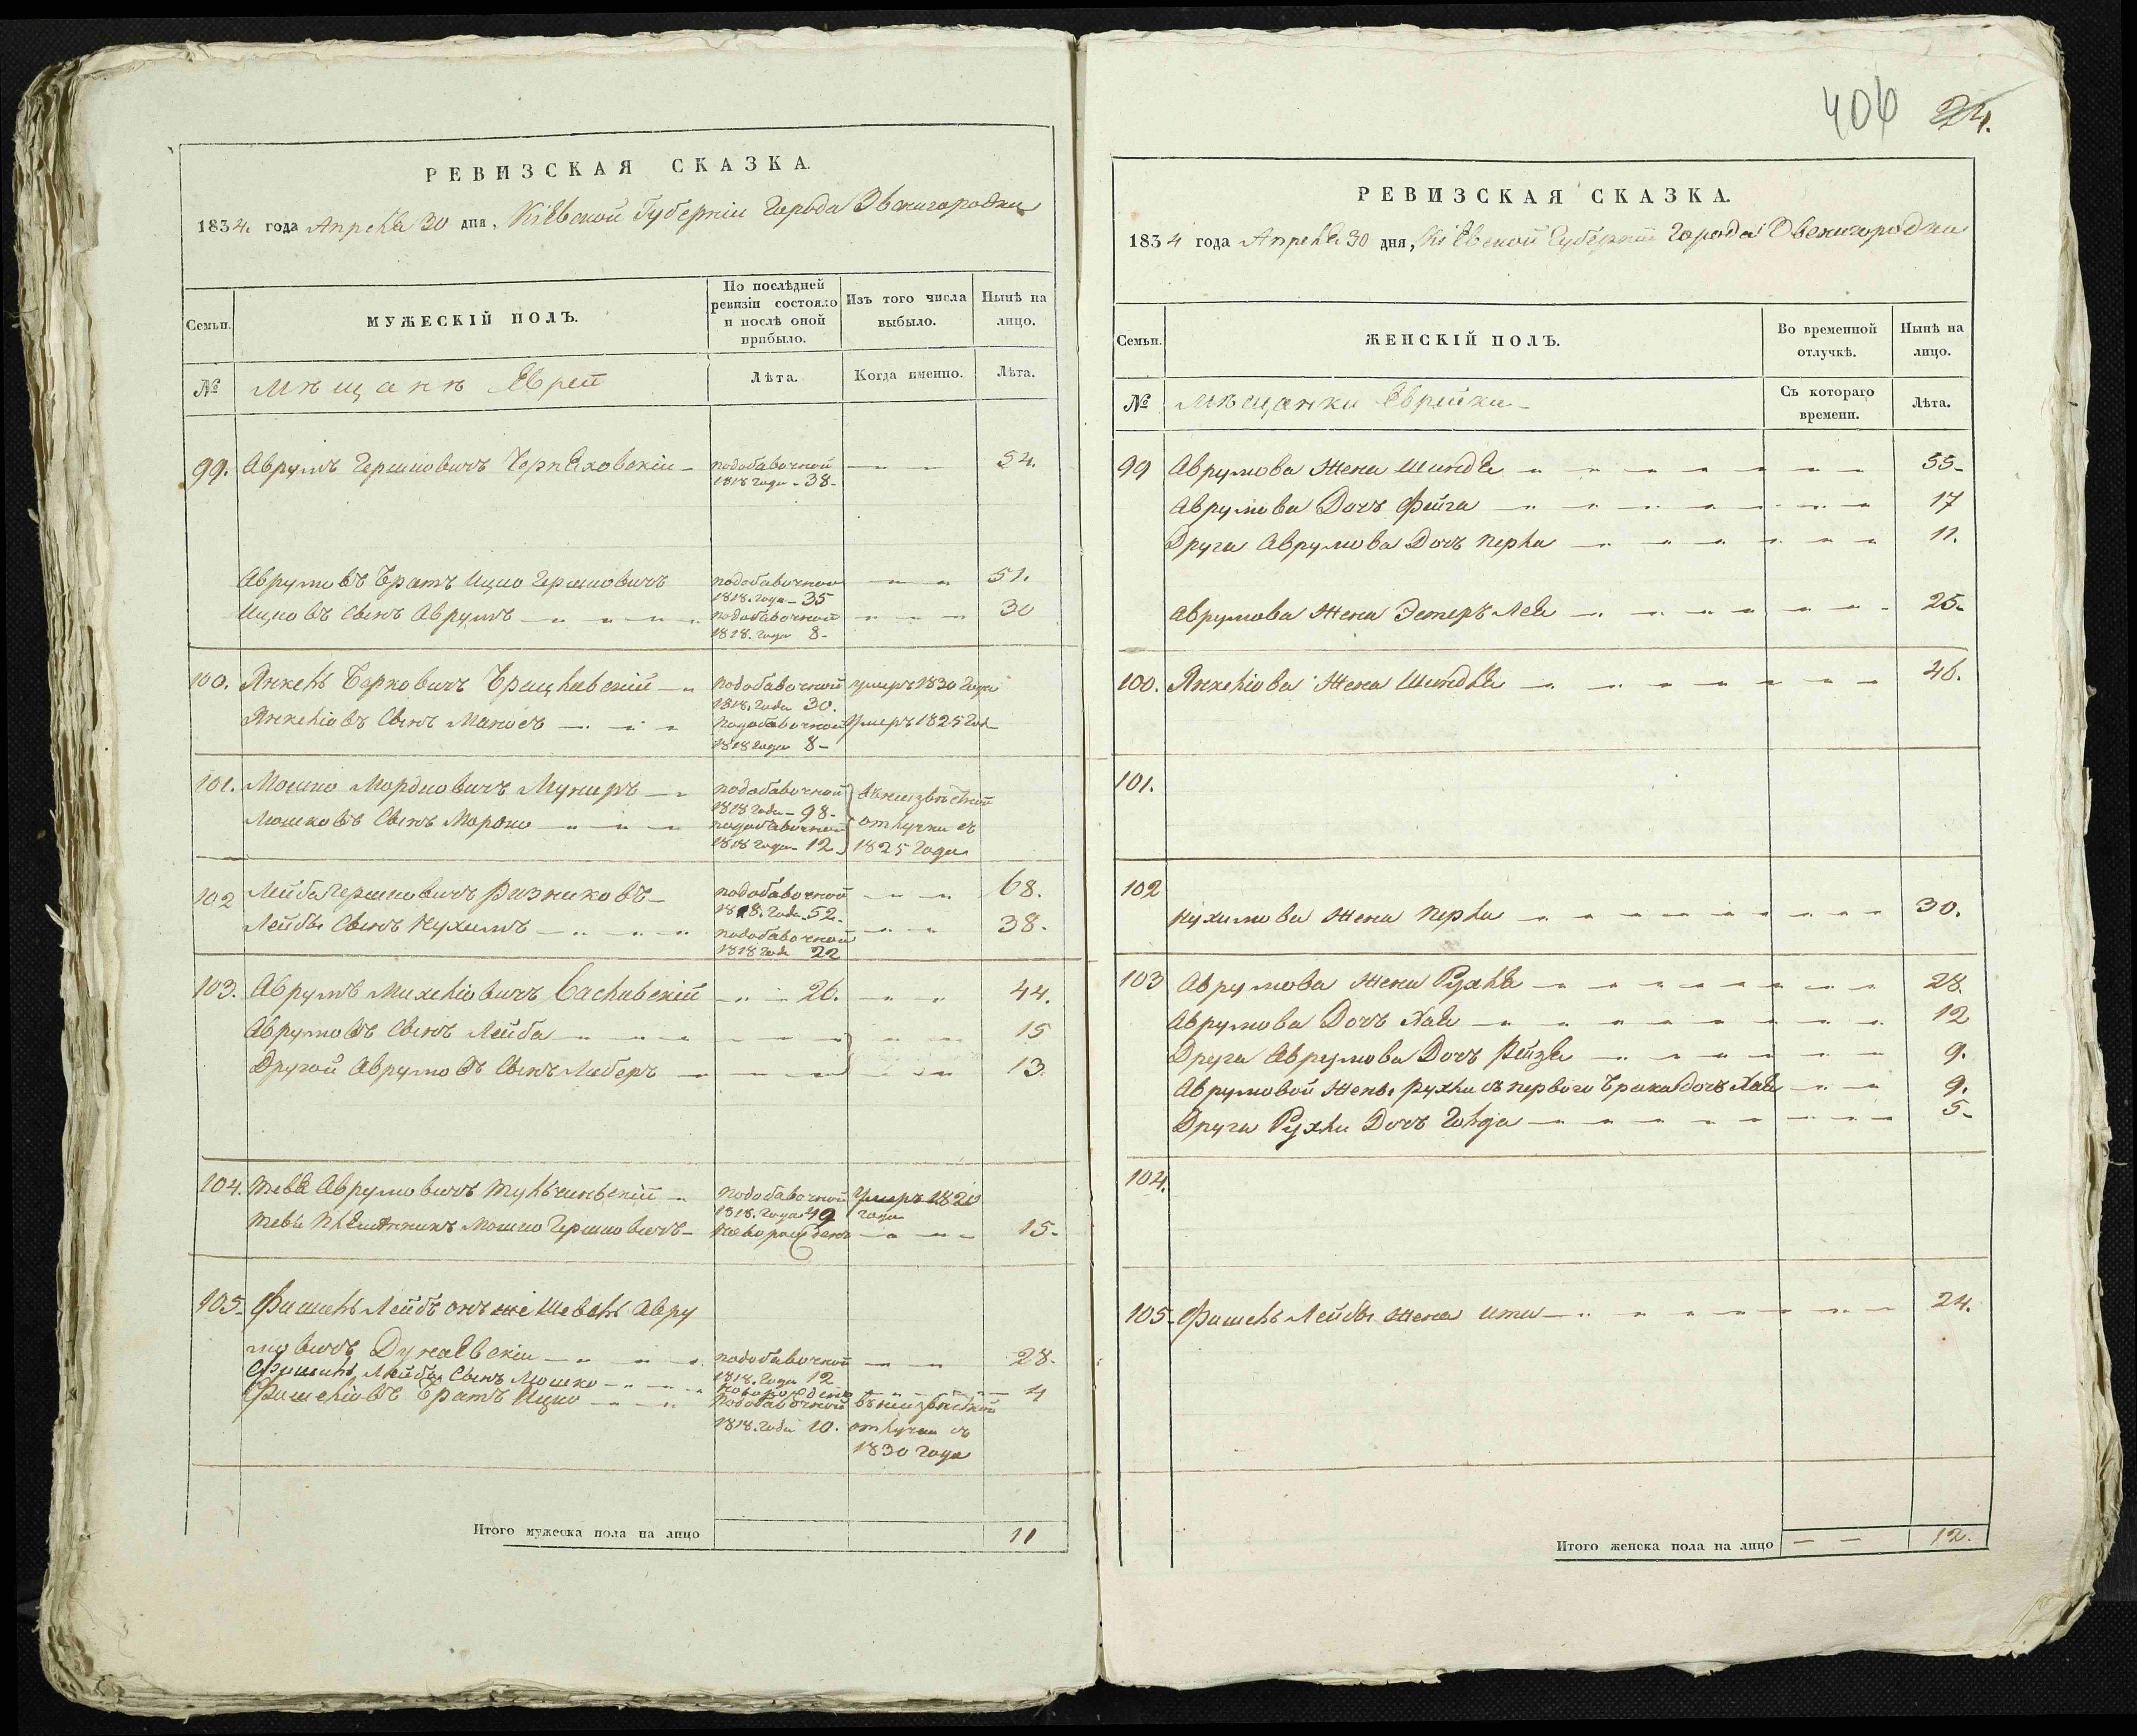 РЕВИЗСКАЯ СКАЗКА.
1834. года Апреля 30 дня, Кіевской Губерніи Города Звенигородки
Семьи.
МУЖЕСКІЙ ПОЛЪ.
По послѣдней
ревизіи состояло
и послѣ оной
прибыло.
Изъ того числа
выбыло.
Нынѣ на
лицо.
№ Мѣщанѣ Евреи
Лѣта.
Когда именно.
Лѣта.
99. Аврумъ Гершковичъ Черняховскіи подобавочной 54.
1818 года 38
Аврумовъ Братъ Ицко Гершковичъ подобавочной 51.
1818. года 35
Ицковъ Сынъ Аврумъ подобавочной 30
1818. года 8
100. Янкель Берковичъ Брацлавскій подобавочной умеръ 1830 года
1818. года 30.
Янкеліовъ Сынъ Маносъ подобавочной умеръ 1825 год
1818 года 8
101. Мошко Мордковичъ подобавочной въ неизвѣстной
1818 года 98
Мошковъ Сынъ Мордко подобавочной отлучки съ
1818 года 12 1825 года
102 Лейба Гершковичъ Ризниковъ подобавочной 68.
1818. года 52
Лейбы Сынъ Нухимъ подобавочной 38.
1818 года 22
103. Аврумъ Михеліовичъ Саславскій 26. 44.
Аврумовъ Сынъ Лейба 15
Другой Аврумовъ Сынъ Либеръ 13.
104. Тевя Аврумовичъ Тульчинскій подобавочной Умеръ 1820
1818. года 49 года
Тевы Племянникъ Мошко Гершковичъ новорожденъ 15
105 Фишель Лейбъ онъ же Шевель Авру
мовичъ Дунаевскіи подобавочной 28.
1818. года 12
Фишель Лейбы Сынъ Мошко новорожденъ 4
Фишеліовъ Братъ Ицко подобавочной въ неизвѣстной
1818. года 10. отлучки съ
1830 года
Итого мужеска пола на лицо 11
406 24.
РЕВИЗСКАЯ СКАЗКА.
1834 года Апреля 30 дня, Кіевской Губерніи Города Звенигородки
Семьи.
ЖЕНСКІЙ ПОЛЪ.
Во временной
отлучкѣ.
Нынѣ на
лицо.
№ Мѣщанки Еврейки
Съ котораго
времени.
Лѣта.
99 Аврумова Жена Шиндя 55
Аврумова Дочъ Фейга 17
Друга Аврумова Дочъ Перла 11.
Аврумова Жена Эстеръ Лея 25
100. Янкеліова Жена Шиндля 46.
101.
102
Нухимова Жена Перла 30.
103 Аврумова Жена Рухля 28.
Аврумова Дочъ Хая 12
Друга Аврумова Дочъ Рейзя 9.
Аврумовой Жены Рухли съ первого брака дочъ Хая 9.
Друга Рухли Дочъ Голда 5
104.
105 Фишель Лейбы Жена Ити 24.
Итого женска пола на лицо 12.